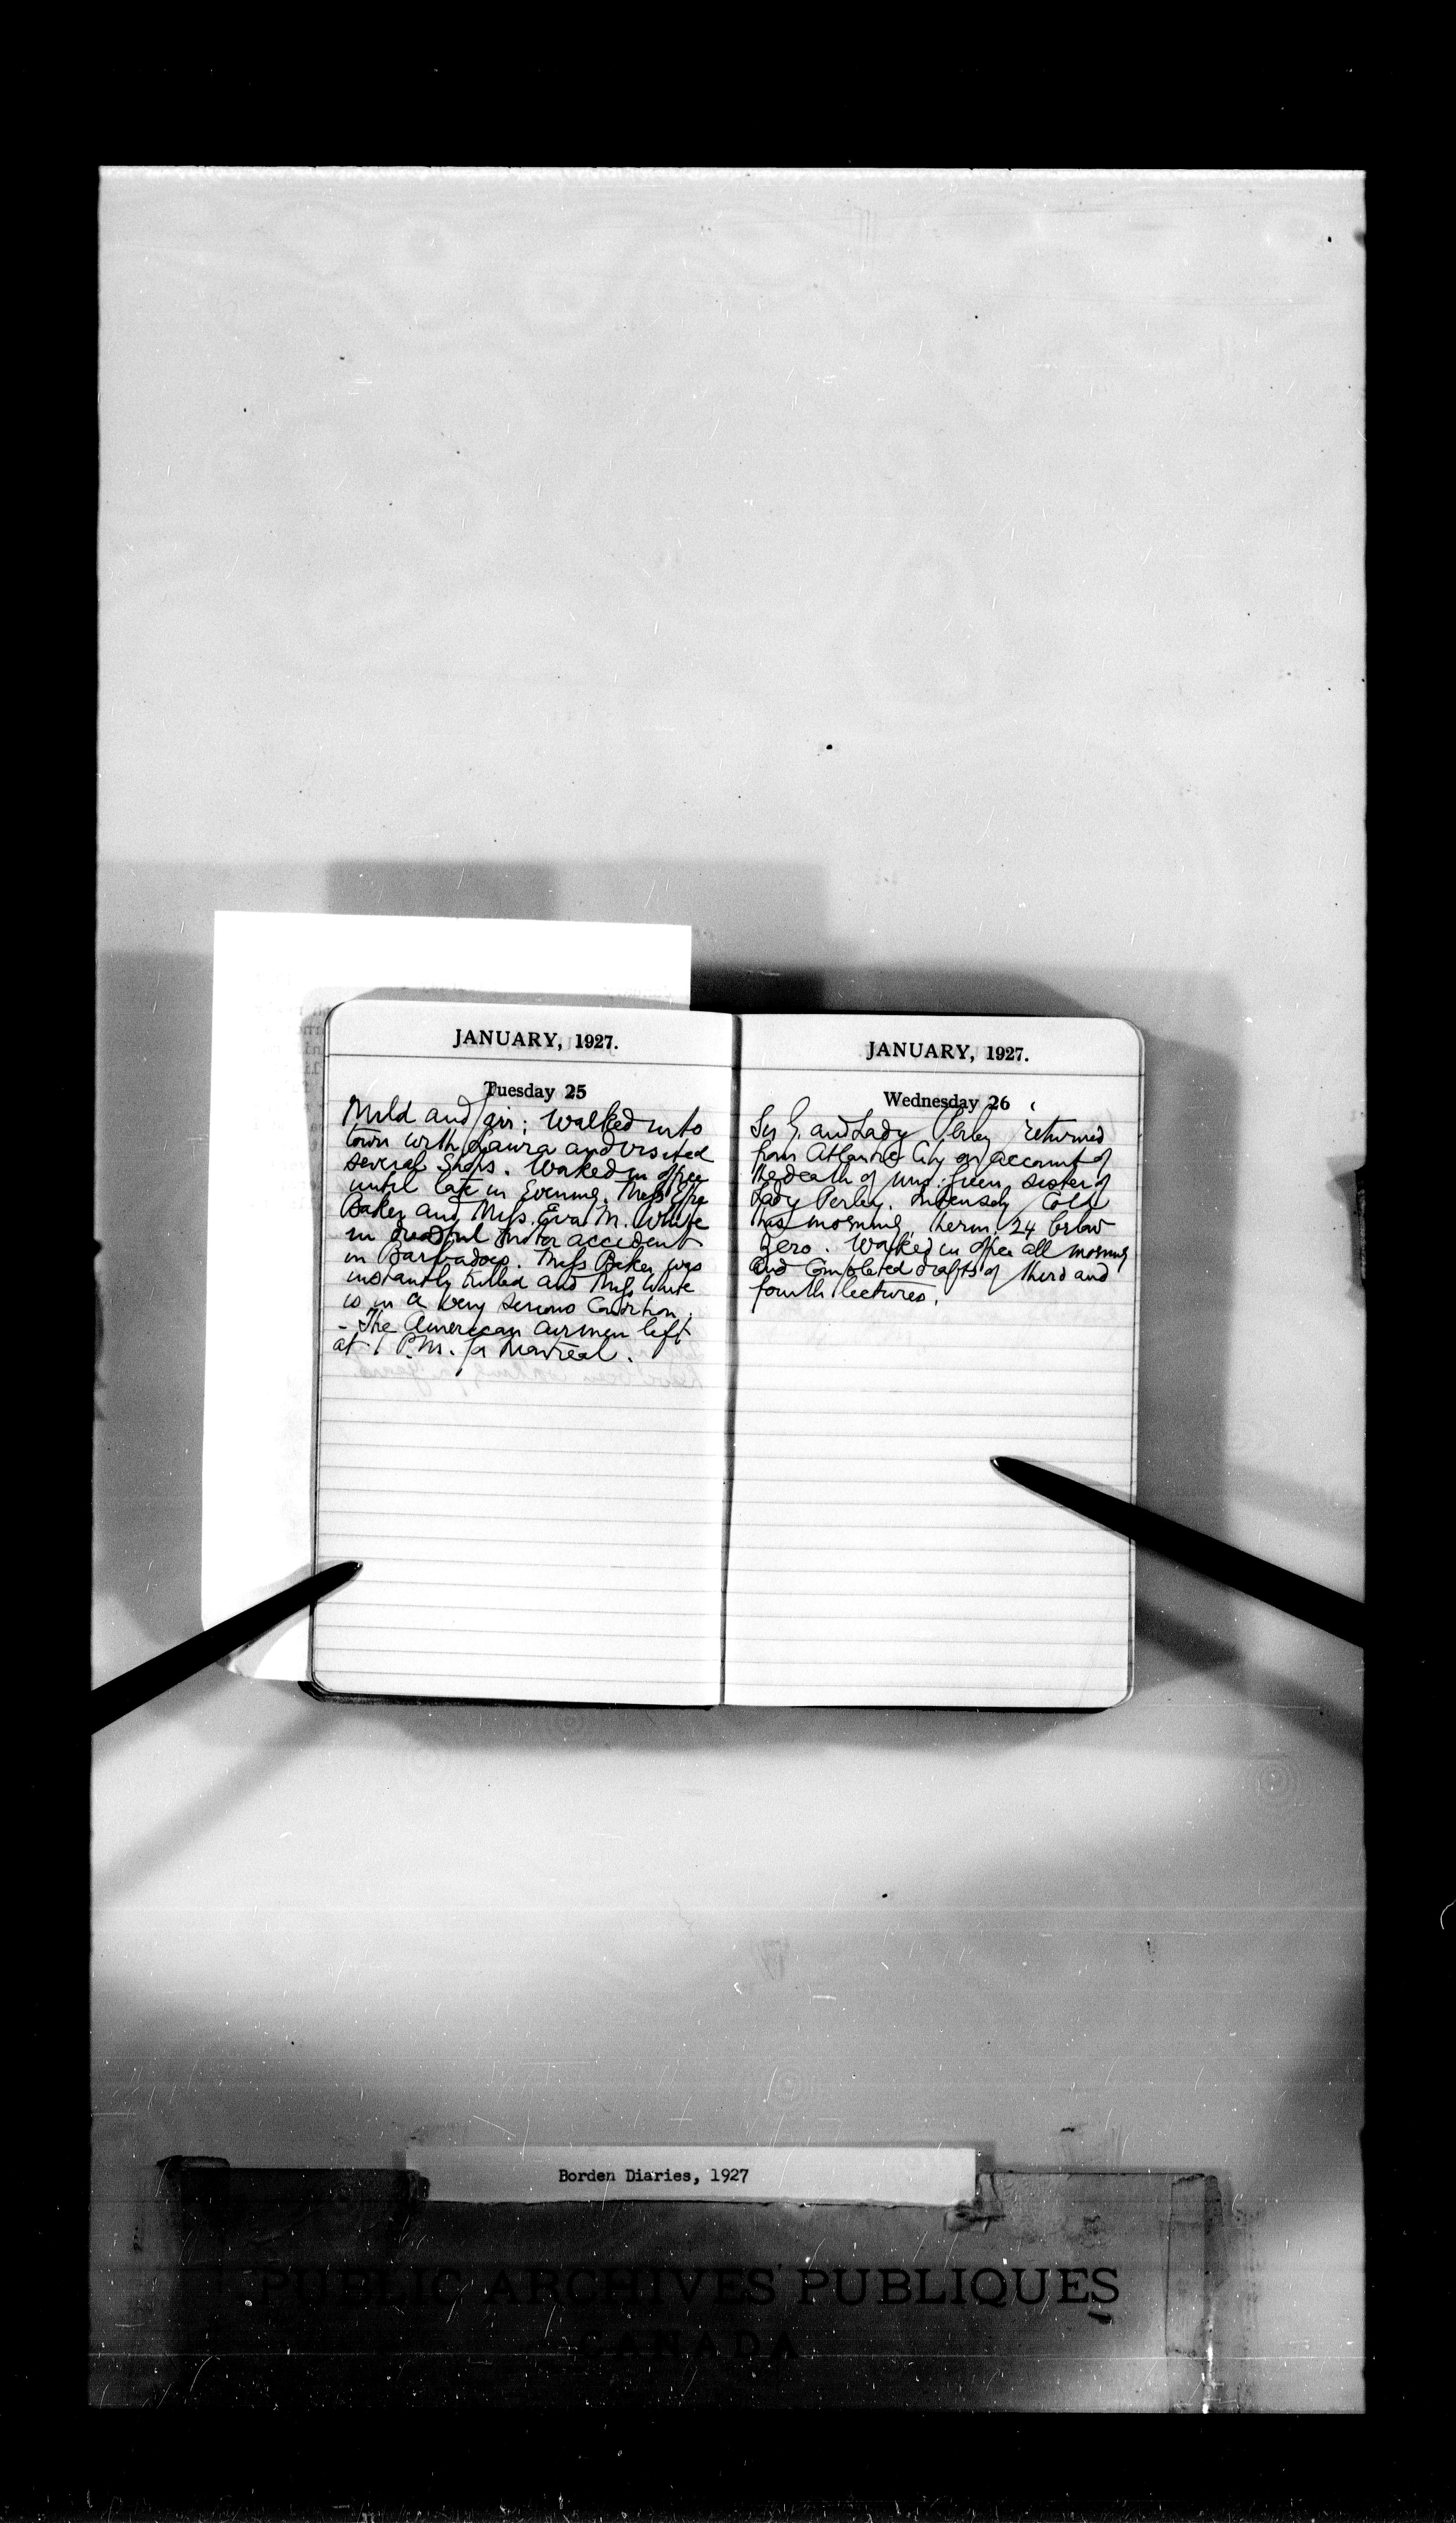 JANUARY, 1927.
Tuesday 25
Mild and fair; Walked into
town with Laura and visited
several shops. Worked in office
until late in evening. Miss Effie
Baker and Miss Eva M. White
in dreadful motor accident
in Barbadoes. Miss Baker was
instantly killed and Miss White
is in a very serious condition.
- The American airmen left
at 1 P.M. for Montreal.
JANUARY, 1927.
Wednesday 26
Sir G. and Lady Perley returned
from Atlantic City on account of
the death of Mrs. Green, sister of
Lady Perley. Intensely cold
this morning, therm. 24 below
zero. Worked in office all morning
and completed drafts of third and
fourth lectures.
Borden Diaries, 1927
PUBLIC ARCHIVES PUBLIQUES
CANADA